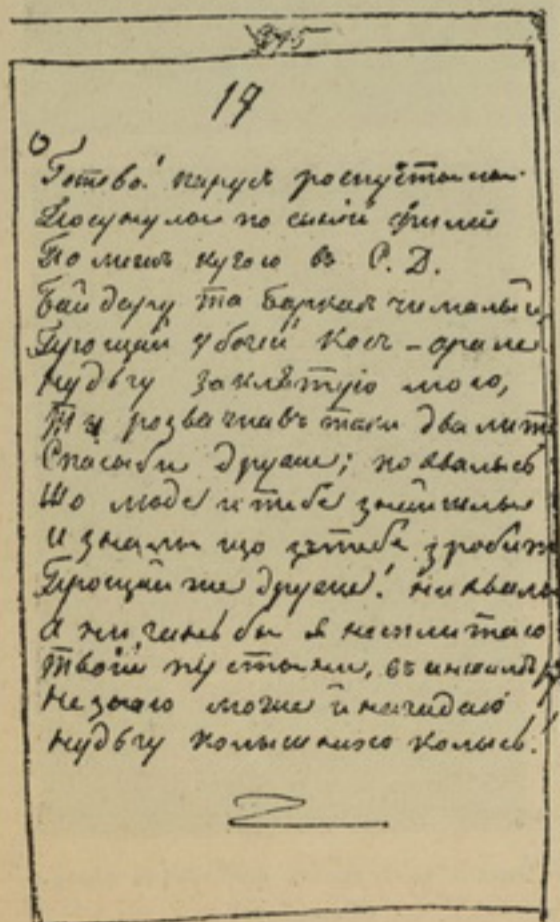 345
17
Готово! парусъ роспустыли
Посунулы по синій филѣ
Помижъ кугою въ С. Д.
Байдару та баркасъ чималый
Прощай убогий Косъ-арале
Нудьгу заклятую мою,
Ты розважавъ таки два лита
Спасыби друже; похвалысь
Що люде и тебе знайшлы
И зналы що зъ тебе зробить
Прощай же друже! ни хвалы
А ни ганьбы я не сплитаю
Твоій пустыни, въ иншимъ
Не знаю може й нагадаю
Нудьгу колышнюю колысь!